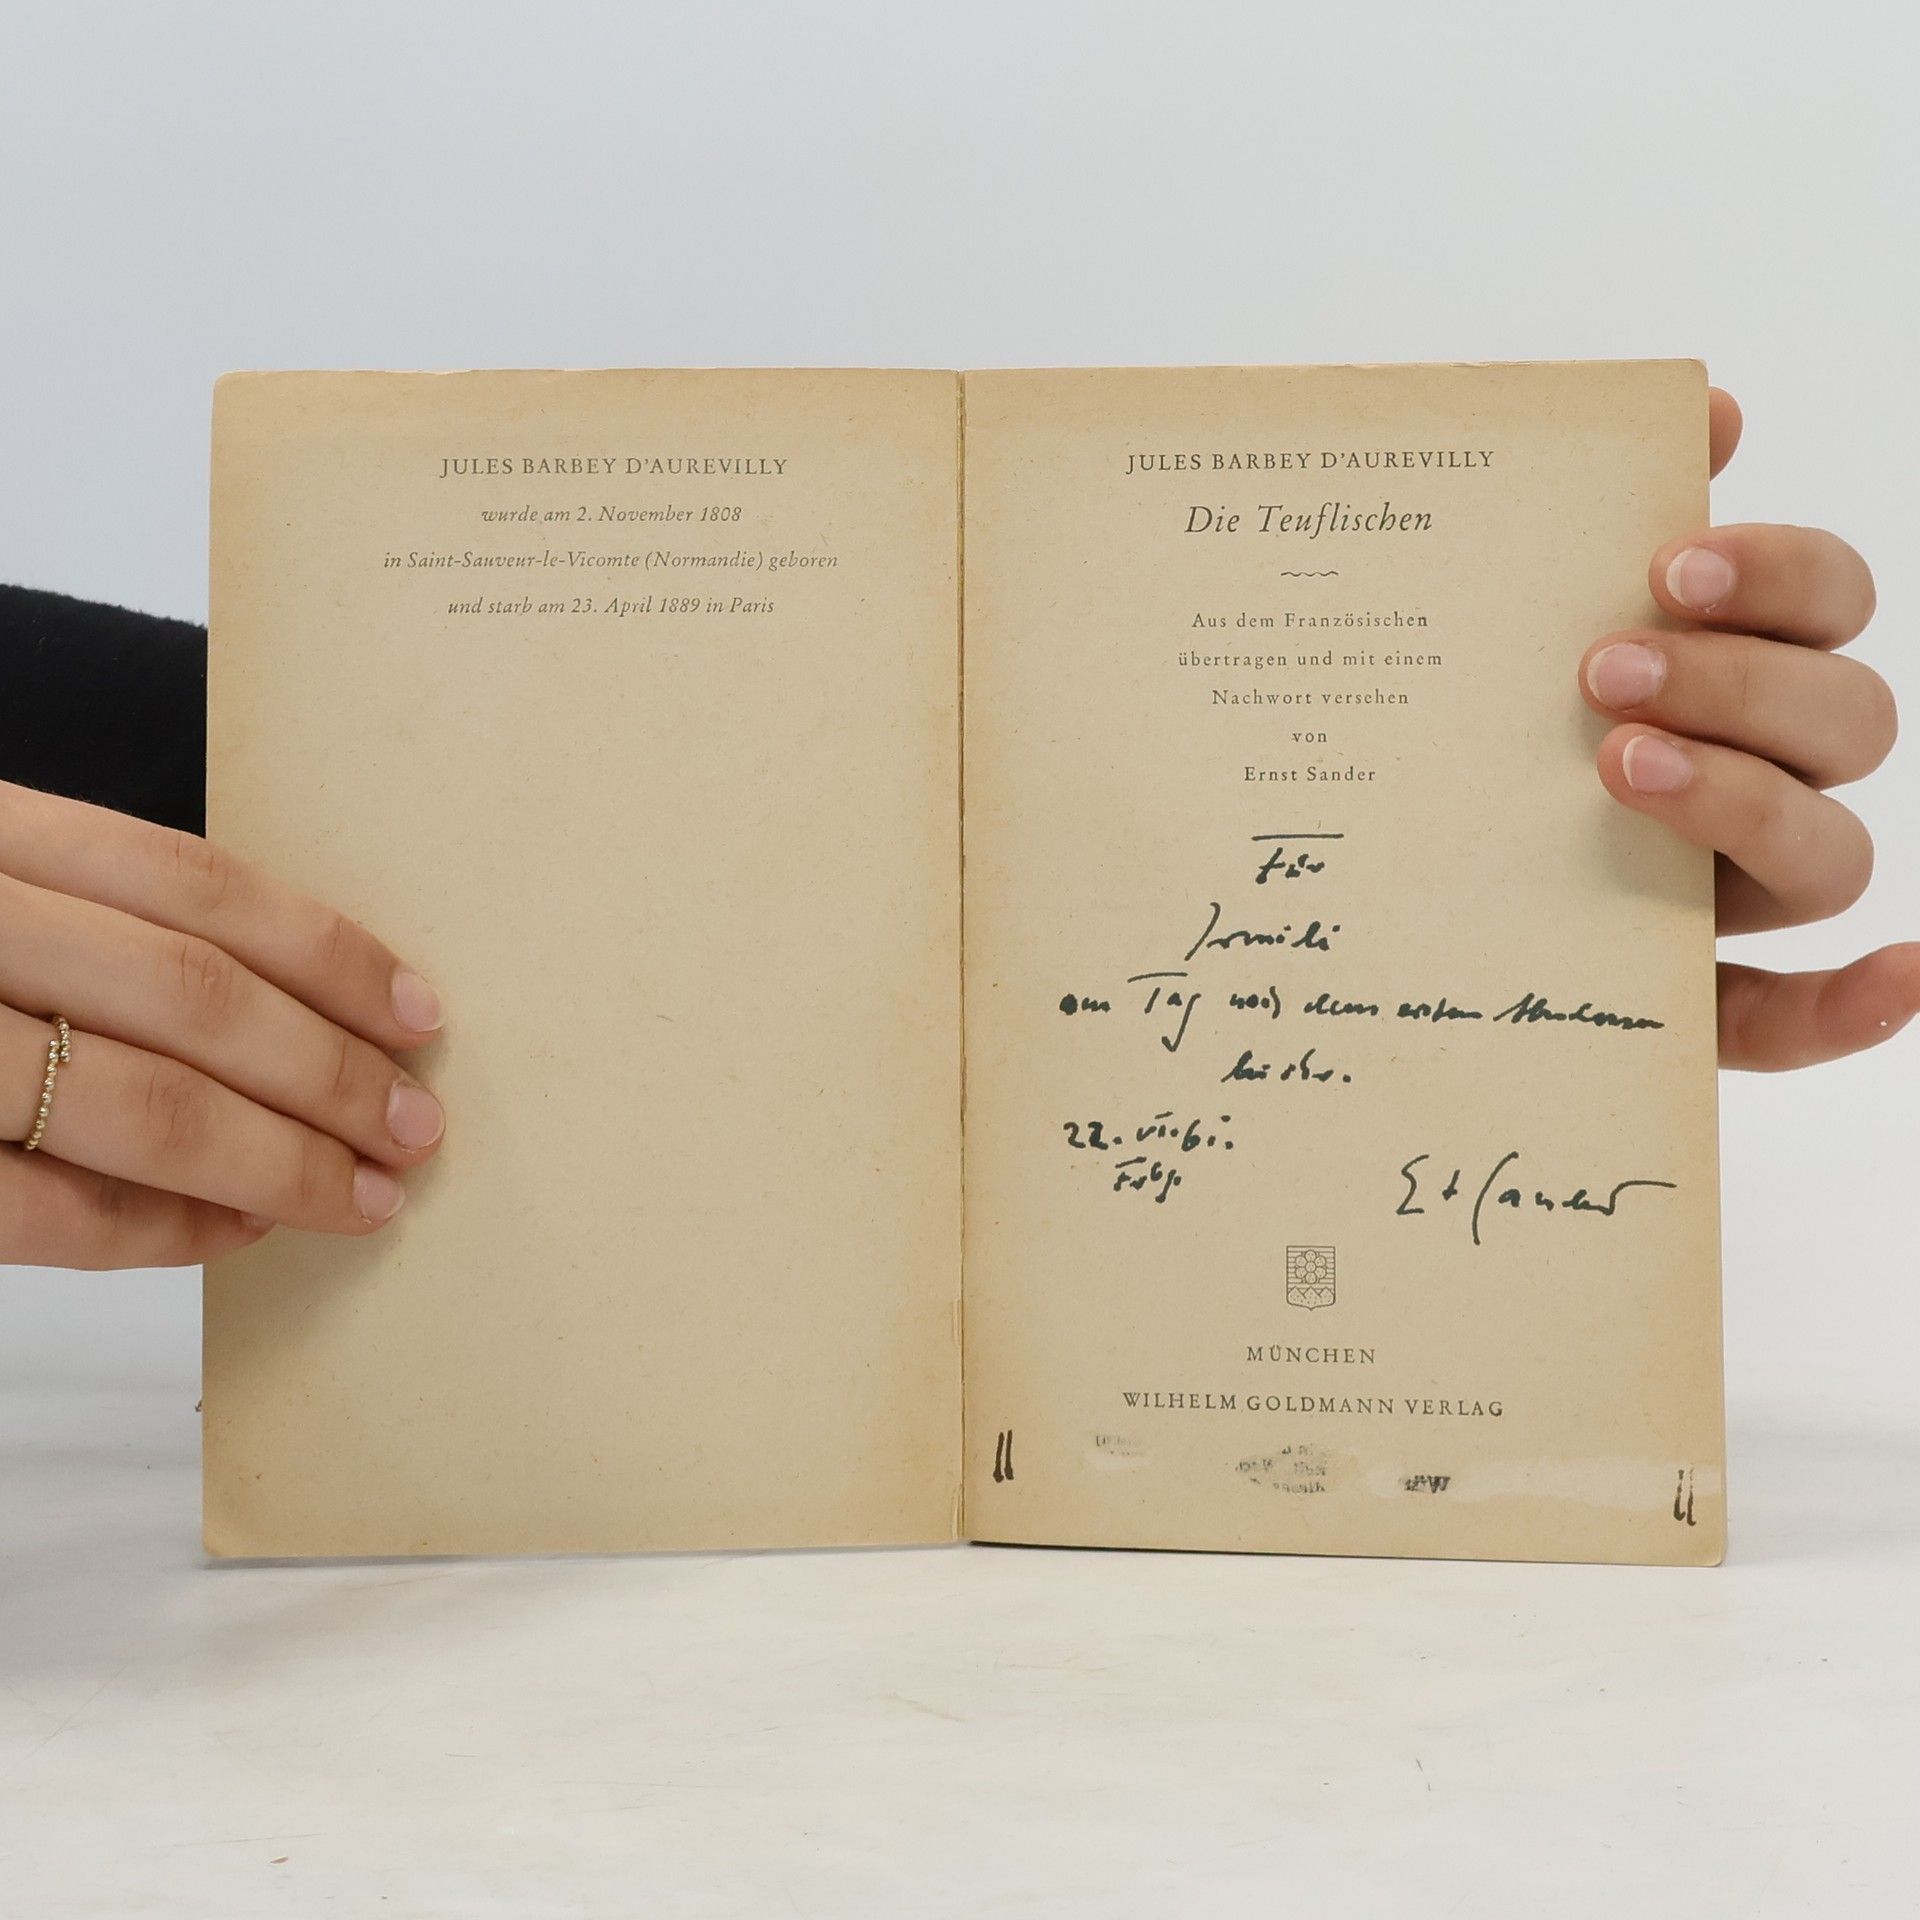 JULES BARBEY D'AUREVILLY
wurde am 2. November 1808
in Saint-Sauveur-le-Vicomte (Normandie) geboren
und starb am 23. April 1889 in Paris
JULES BARBEY D'AUREVILLY
Die Teuflischen
Aus dem Französischen
übertragen und mit einem
Nachwort versehen
von
Ernst Sander
Für
Irmili
am Tag nach dem ersten
22. VI. 61.
Frbg.
E + Sander
MÜNCHEN
WILHELM GOLDMANN VERLAG